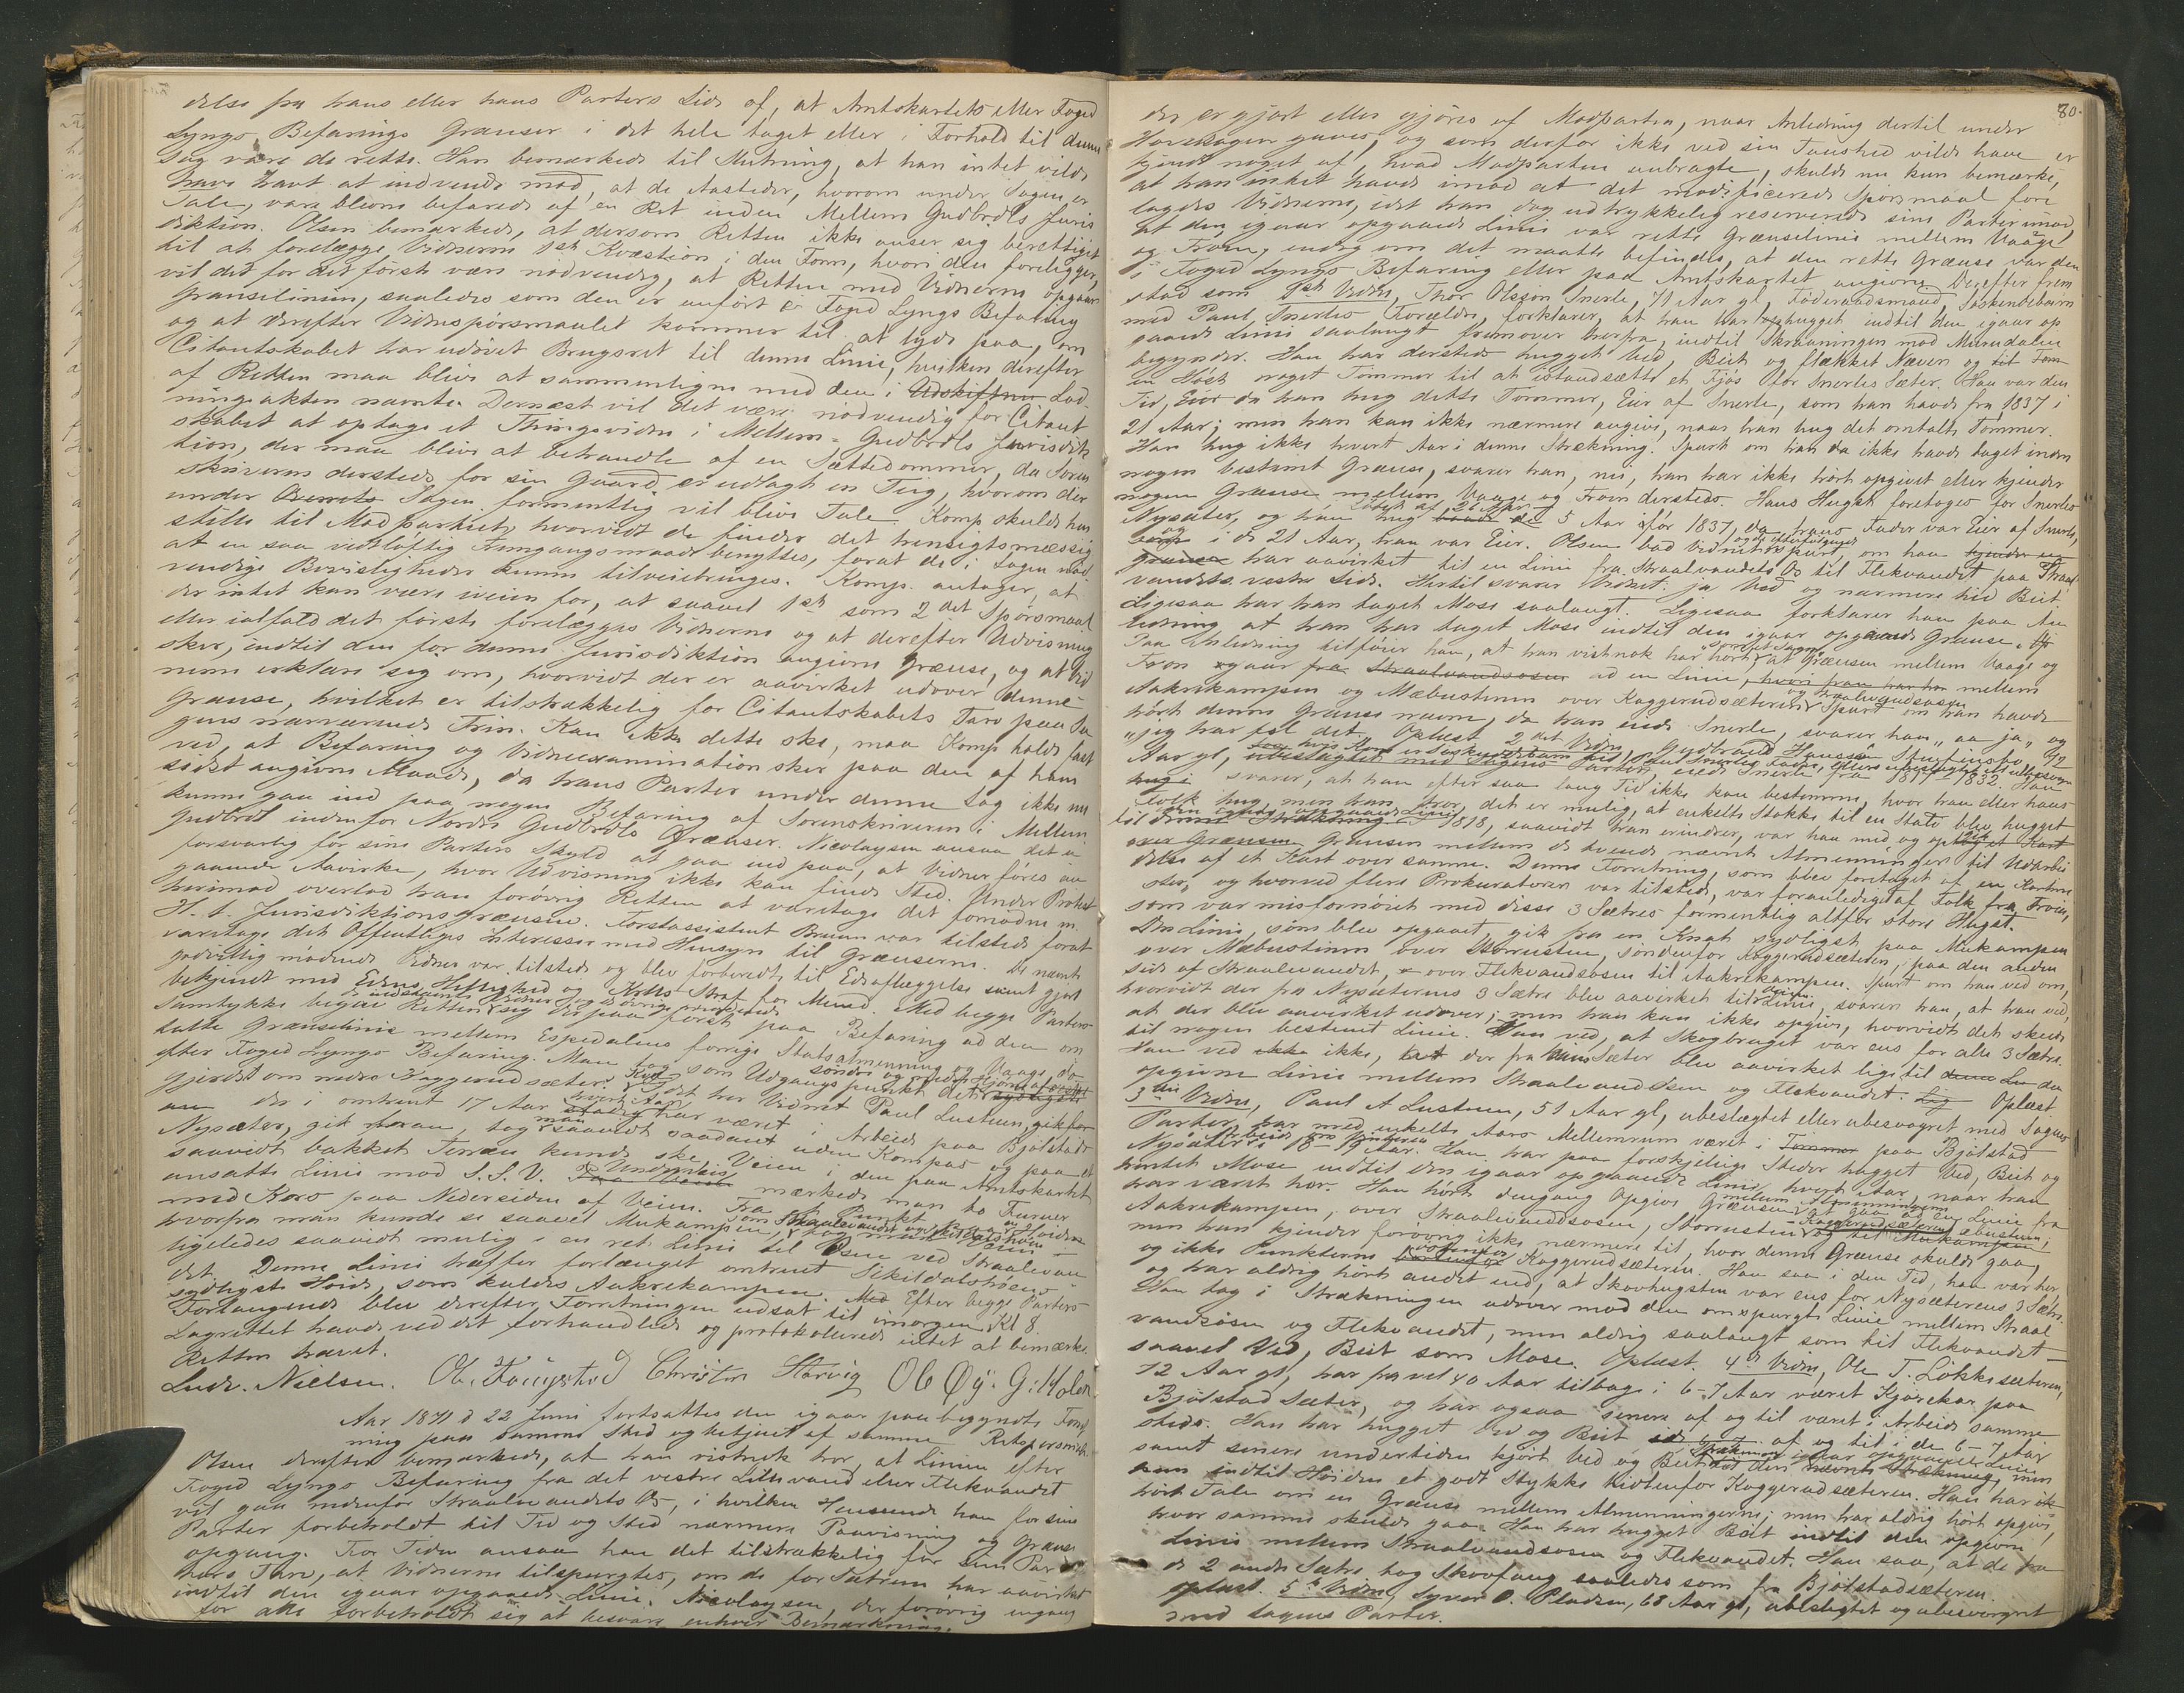 delse fra hans eller hans Parters Side af, at Amtskartets eller Foged
Lyngs Befarings Grænser i det hele taget eller i Forhold til denne
Sag være de rette. Han bemærkede til Slutning, at han intet vilde
have havt at indvende mod, at de Aasteder, hvorom under Sagen er
Tale, vare blevne befarede af en Ret inden Mellem Gudbrdls Juris
diktion. Olsen bemærkede, at dersom Retten ikke anser sig berettiget
til at forelægge Vidnerne 1ste Kvæstion i den Form, hvori den foreligger,
vil det for det første være nødvendig, at Retten med Vidnerne opgaar
Grænselinien, saaledes som den er anført i Foged Lyngs Befaring
og at derefter Vidnespørsmaalet kommer til at lyde paa, om
Citantskabet har udøvet Brugsret til denne Linie, hvilken derefter
af Retten maa blive at sammenligne med den i Udskiftnin Lod-
ningsakten nævnte. Dernæst vil det være nødvendig for Citant
skabet at optage et Thingsvidne i Mellem-Gudbrdls Jurisdik
tion, der maa blive at behandle af en Sættedommer, da Soren
skriveren dersteds for sin Gaard er udlagt en Teig, hvorom der
under Sagen formentlig vil blive Tale. Komp skulde hen
stille til Modpartiet, hvorvidt de finder det hensigtsmæssig
at en saa vidtløftig Fremgangsmaade benyttes, forat de i Sagen nød
vendige Bevisligheder kunne tilveiebringes. Komp. antager, at
der intet kan være iveien for, at saavel 1ste som 2det Spørsmaal
eller ialfald det første forelægges Vidnerne og at derefter Udvisning
sker, indtil den for denne Jurisdiktion angivne Grænse, og at Vid
nerne erklære sig om, hvorvidt der er aavirket udover denne
Grænse, hvilket er tilstrækkelig for Citantskabets Tarv paa Sa
gens nærværende Trin. Kan ikke dette ske, maa Komp holde fast
ved, at Befaring og Vidneexamination sker paa den af ham
sidst angivne Maade, da hans Parter under denne Sag ikke
kunne gaa ind paa nogen Befaring af Sorenskriveren i Mellem
Gudbrdl indenfor Nordre Gudbrdls Grænser. Nicolaysen ansaa det u
forsvarlig for sine Parters Skyld at gaa ind paa, at Vidner føres an
gaaende Aavirke, hvor Udvisning ikke kan finde Sted. Under Protest
herimod overlod han forøvrig Retten at varetage det fornødne m.
H. t. Jurisdiktionsgrænsen. Forstassistent Bruun var tilstede forat
varetage det Offentliges Interesser med Hensyn til Grænserne. De nævnte
godvillig mødende Vidner var tilstede og blev forberedt til Edsaflæggelse samt gjort
bekjendt med Edens Hellighed og Kvlts Straf for Mened. Med begge Parters
Samtykke begav Retten indstævnte Vidner og de øvrige mødende sig derpaa først paa Befaring ad den om
talte Grænselinie mellem Espedalens forrige Statsalmenning og Vaage, der
efter Foged Lyngs Befaring. Man tog som Udgangspunkt det søndre og nedre Hjørne af
gjerdet om nedre Kaggerudsæter. Fjed det har Vidnet Paul Lusteen, gik for
an der i omtrent 17 Aar hvert Aar stadig har været i Arbeide paa Bjølstads
Nysæter, gik foran, tog man saavidt saadant uden Kompas og paa et
saavidt bakket Terræn kunde ske, Veien i den paa Amtskartet
ansatte Linie mod S. S. V. Underveis mærkede man to Furuer
med Kors paa Nedersiden af Veien. Fra et Punkt
hvorfra man kunde se saavel Mukampen, som Straalevandet
ligeledes saavidt mulig i en ret Linie til Osen ved Straalevan
det. Denne Linie træffer forlænget omtrent Sikilsdalshøens
sydligste Høide, som kaldes Aakrekampen. Med Efter begge Parters
Forlangende blev derefter Forretningen udsat til imorgen Kl 8.
Lagrettet havde ved det forhandlede og protokollerede intet at bemærke.
Retten hævet.
Ludv. Nielsen. Ol. Formystad Christen Harvig Ol Øy. G. Holen
Aar 1871 d 22 Juni fortsattes den igaar paabegyndte Forret
ning paa samme Sted og betjent af samme Retspersonale.
Olsen derefter bemærkede, at han vistnok tror, at Linien efter
Foged Lyngs Befaring fra det vestre Lillevand eller Flekvandet
vil gaa nedenfor Straalevandets Os, i hvilken Henseende han for sine
Parter forbeholdt til Tid og Sted nærmere Paavisning og Grænse
opgang. For Tiden ansaa han det tilstrækkelig for sine Par
ters Tarv, at Vidnerne tilspurgtes, om de for Sætrene har aavirket
indtil den igaar opgaaede Linie. Nicolaysen, der forøvrig engang
for alle forbeholdt sig at besvare enhver Bemærkning,
80.
der er gjort eller gjøres af Modparten, naar Anledning dertil under
Hovedsagen gaves, og som derfor ikke ved sin Taushed vilde have er
kjendt noget af, hvad Modparten anbragte, skulde nu kun bemærke,
at han intet havde imod at det modificerede Spørsmaal fore
lagdes Vidnerne, idet han dog udtrykkelig reserverede sine Parter imod,
at den igaar opgaaede Linie var rette Grænselinie mellem Vaage
og Fron, endog om det maatte befindes, at den rette Grænse var den
i Foged Lyngs Befaring eller paa Amtskartet angivne. Derefter frem
stod som 1ste Vidne, Thor Olsson Snerle, 71 Aar gl, Føderaadsmand, Søskendebarn
med Paul Snerles Forældre, forklarer, at han har hugget indtil den igaar op
gaaede Linie saalangt fremover herfra, indtil Skraaningen mod Murudalen
begynder. Han har dersteds hugget Ved, Beit og flækket Næver og tit Tom
en Høst noget Tømmer til at istandsætte et Fjøs for Snerles Sæter. Han var den
Tid, Eier da han hug dette Tømmer, Eier af Snerle, som han havde fra 1837 i
21 Aar; men han kan ikke nærmere angive, naar han hug det omtalte Tømmer.
Han hug ikke hvert Aar i denne Strækning. Spurt om han da ikke havde taget inden
nogen bestemt Grænse, svarer han, nei, han har ikke hørt opgivet eller kjender
nogen Grænse mellem Vaage og Fron dersteds. Hans Hugst foretoges for Snerles
Nysæter, og han hug i Løbet af 2 Aar 5 Aar før 1837, da hans Fader var Eier af Snerle,
og i de 21 Aar, han var Eier. Olsen bad Vidnet spurt, om han kjender en
Grænse har aavirket til en Linie fra Straalvandets Os til Flekvandet paa Straal
vandets vestre Side. Hertil svarer Vidnet: ja Ved og nærmere hid Beit.
Ligesaa har han taget Mose saalangt. Ligesaa forklarer han paa An
ledning at han har taget Mose indtil den igaar opgaaede Grænse.
Paa Anledning tilføier han, at han vistnok har hørt som et Sagn at Grænsen mellem Vaage og
Fron gaar fra Straalvandsosen ad en Linie, hvori han har hø mellem
Aakrekampen og Mæbustenen over Kaggerudsæteren og Straalvandsosen. Spurt om han havde
hørt denne Grænse nævne, da han eiede Snerle, svarer han „aa ja„ og
„jeg har vel det. Oplæst. 2det Vidne, Gudbrand Hansen Stuflusbø 69
Aar gl, ubeslægtet med Sagens Parter, eiede Snerle fra 1817-1832. Han
svarer, at han efter saa lang Tid ikke kan bestemme, hvor han eller hans
Folk hug, men han tror, det er mulig, at enkelte Stokke til en Stald blev hugget
til den igaar opgaaede Linie. I 1818, saavidt han erindrer, var han med og optog et Kart
over Grænsen Grænsen mellem de tvende nævnte Almenninger til Udarbei
delse af et Kart over samme. Denne Forretning, som blev foretaget af en Kortinst
ster, og hvorved flere Prokuratorer var tilstede, var foranlediget af Folk fra Fron,
som var misfornøiet med disse 3 Sætres formentlig altfor store Hugst.
Den Linie, som blev opgaaet, gik fra en Knat sydligst paa Mukampen
over Mæbustenen over Storrusten, søndenfor Kaggerudsæteren, paa den anden
Side af Straalevandet, over Flekvandsosen til Aakrekampen. Spurt om han ved om,
hvorvidt der fra Nysæterens 3 Sætre blev aavirket til denne Linie, svarer han, at han ved,
at der blev aavirket udover; men han kan ikke opgive, hvorvidt det skede
til nogen bestemt Linie. Han ved, at Skogbruget var ens for alle 3 Sætre.
Han ved ikke, hvor der fra hans Sæter blev aavirket lige til denne Lin den
opgivne Linie mellem Straalevandosen og Flekvandet. Oplæst.
3die Vidne, Paul A Lusteen, 51 Aar gl, ubeslægtet eller ubesvogret med Sagens
Parter, har med enkelte Aars Mellemrum været i Tømmer paa Bjølstad
Nysæter i Arbeide om Vinteren 18-19 Aar. Han har paa forskjellige Steder hugget Ved, Beit og
hentet Mose indtil den igaar opgaaede Linie hvert Aar, naar han
har været her. Han hørt dengang opgive Grænsen mellem Almenningerne at gaa ad en Linie fra
Aakrekampen, over Straalevandsosen, Storrusten og til Mukampen
men han kjender forøvrig ikke nærmere til, hvor denne Grænse skulde gaa,
og ikke Punkterne ovenfor Kaggerudsæteren. Han saa i den Tid, han var her,
og har aldrig hørt andet end, at Skovhugsten var ens for Nysæterens 3 Sætre.
Han tog i Strækningen udover mod den omspurgte Linie mellem Straal
vandsosen og Flekvandet, men aldrig saalangt som til Flekvandet
saavel Ved, Beit som Mose. Oplæst. 4de Vidne, Ole T. Løkkesæteren,
72 Aar gl, har fra vel 40 Aar tilbage i 6-7 Aar været Kjørekar paa
Bjølstad Sæter, og har ogsaa senere af og til været i Arbeide samme
steds. Han har hugget Ved og Beit af og til i de 6-7 Aar
samt senere undertiden kjørt Ved og Beit til den igaar opgaaede Linie, men
kun indtil Høiden et godt Stykke hidenfor Kaggerudsæteren. Han har ik
hørt Tale om en Grænse mellem Almenningerne; men har aldrig hørt opgive,
hvor samme skulde gaa. Han har hugget Beit indtil den opgivne
Linie mellem Straalvandsosen og Flekvandet. Han saa, at de fra
de 2 andre Sætre tog Skovfang saaledes som fra Bjølstadsæteren.
Oplæst. 5te Vidne, Syver O. Pladsen, 68 Aar gl, ubeslægtet og ubesvogret
med Sagens Parter.